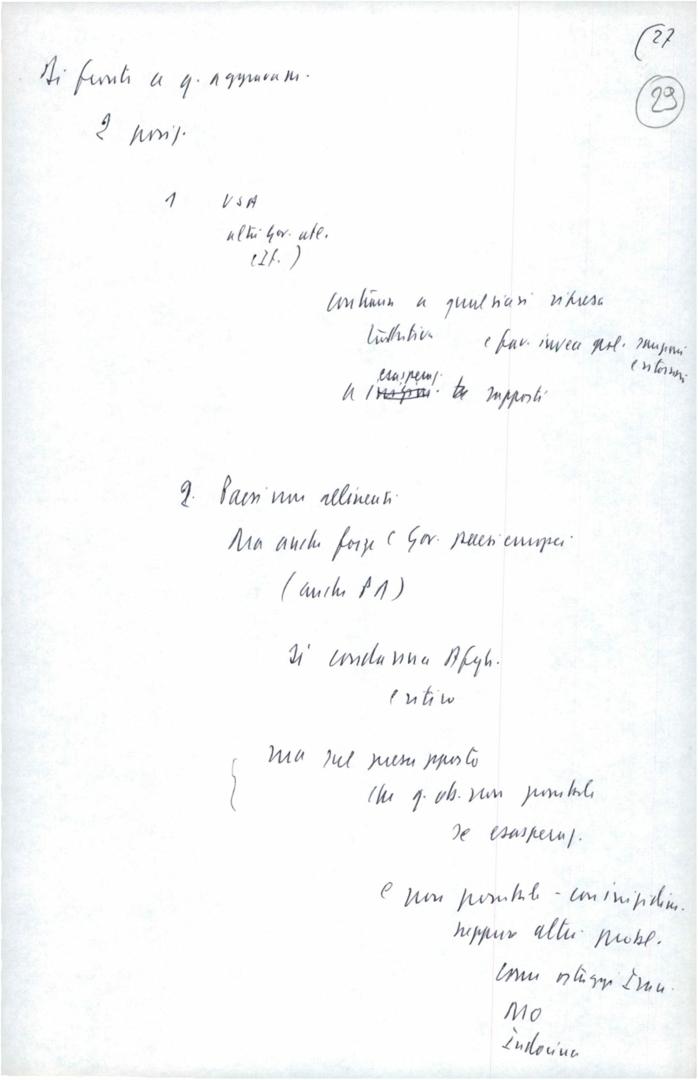 (27
29
Di fronte a q. aggravam.
2 posiz.
1 USA
altri Gov. atl.
(It.)
contrari a qualsiasi ripresa
trattativa e fav. invece
e ritorsioni
esasperaz.
a rapporti
2. Paesi non allineati
Ma anche forze e Gov. paesi europei
(anche PA)
Si condanna Afgh.
e ritiro
ma sul presupposto
che q. ob. non possibile
se esasperaz.
e non possibile - con irrigidim.
neppure altri probl.
come ostaggi Iran.
MO
Indocina